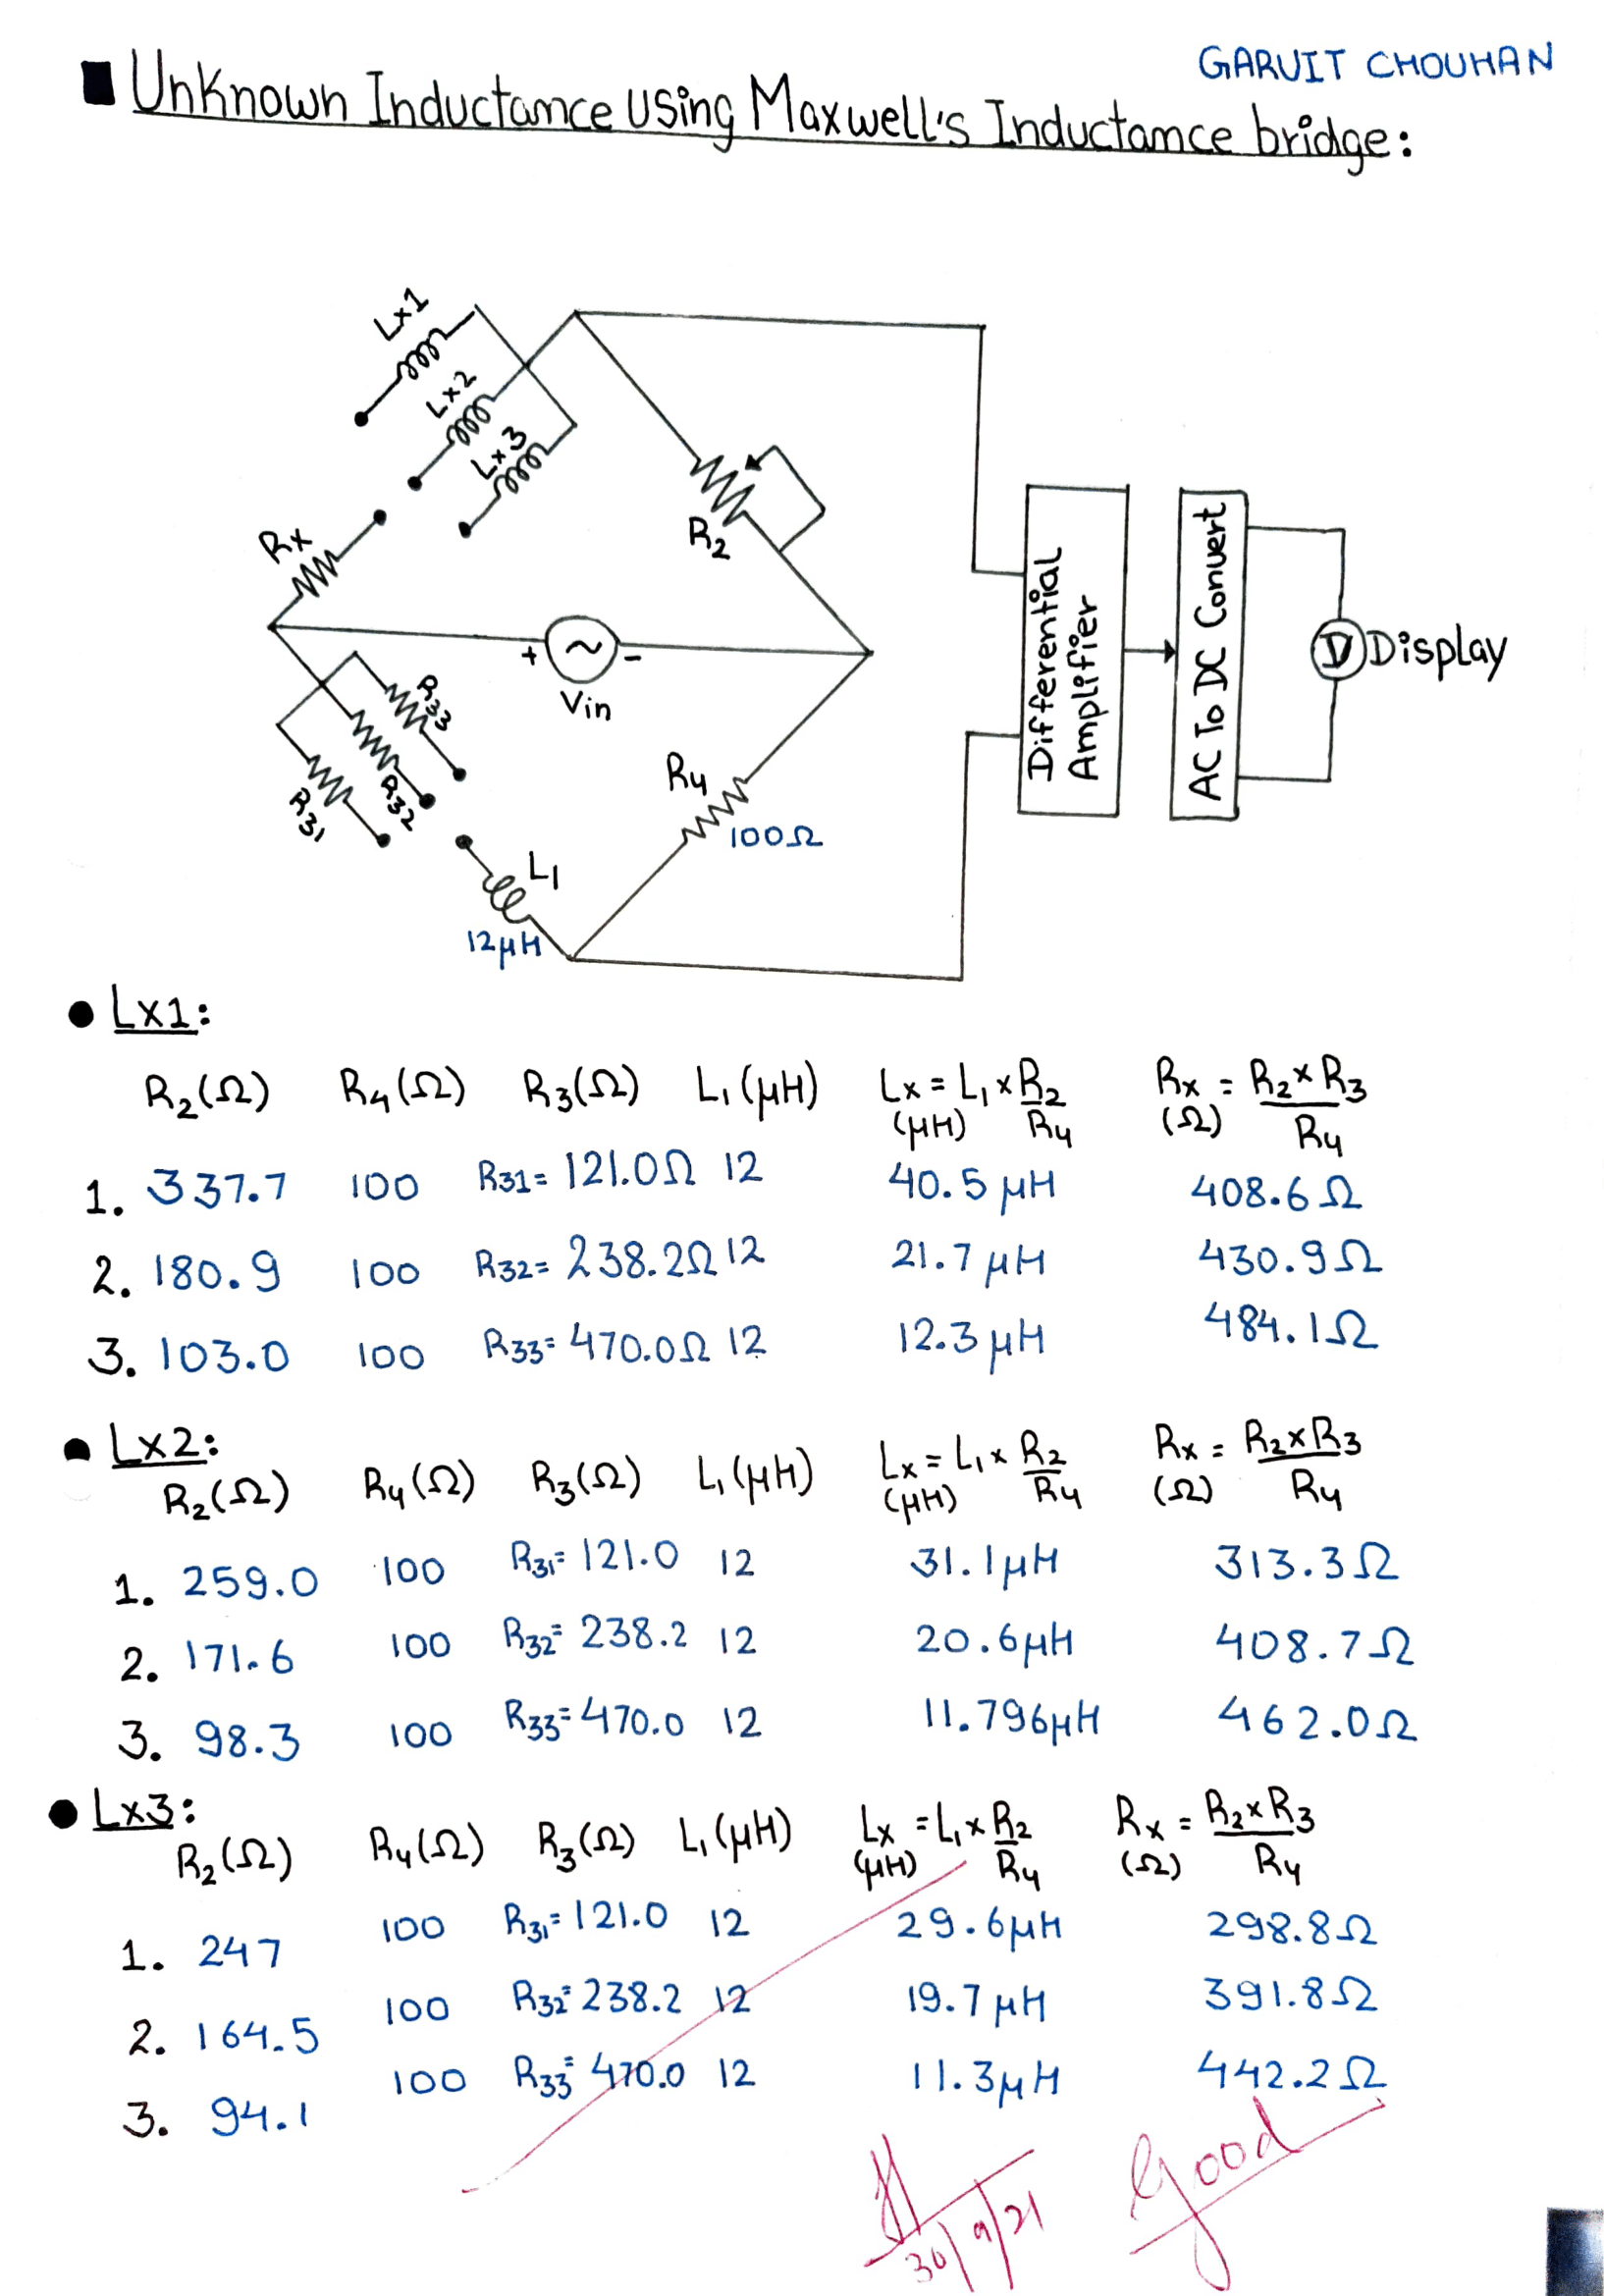 GARVIT CHOUHAN
Unknown Inductance using Maxwell's Inductance bridge:
Lx1
Lx2
Lx3
Rx
R2
+ ~ -
Vin
R33
R32
R31
R4
100Ω
L1
12μH
Differential Amplifier
AC To DC Convert
D Display
Lx1:
R2(Ω) R4(Ω) R3(Ω) L1(μH) Lx(μH) = L1 x R2/R4 Rx(Ω) = R2xR3/R4
1. 337.7 100 R31= 121.0Ω 12 40.5 μH 408.6Ω
2. 180.9 100 R32= 238.2Ω 12 21.7 μH 430.9Ω
3. 103.0 100 R33= 470.0Ω 12 12.3 μH 484.1Ω
Lx2:
R2(Ω) R4(Ω) R3(Ω) L1(μH) Lx(μH) = L1 x R2/R4 Rx(Ω) = R2xR3/R4
1. 259.0 100 R31= 121.0 12 31.1μH 313.3Ω
2. 171.6 100 R32= 238.2 12 20.6μH 408.7Ω
3. 98.3 100 R33= 470.0 12 11.796μH 462.0Ω
Lx3:
R2(Ω) R4(Ω) R3(Ω) L1(μH) Lx(μH) = L1 x R2/R4 Rx(Ω) = R2xR3/R4
1. 247 100 R31= 121.0 12 29.6μH 298.8Ω
2. 164.5 100 R32= 238.2 12 19.7 μH 391.8Ω
3. 94.1 100 R33= 470.0 12 11.3μH 442.2Ω
Good
30/9/21